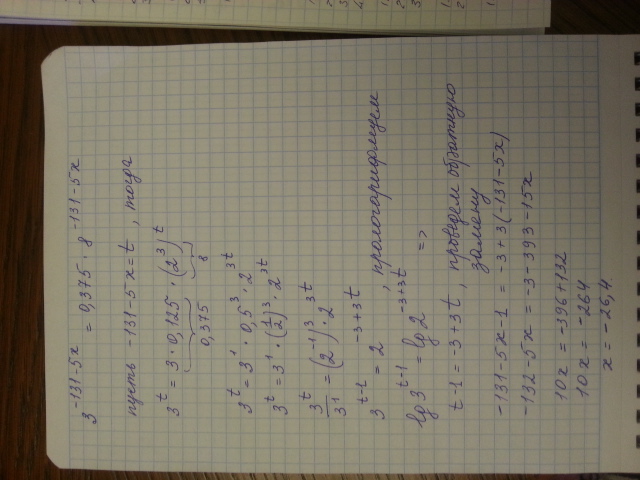 3^{-131-5x} = 0,375 · 8^{-131-5x}
пусть -131-5x=t, тогда
3^t = 3 · 0,125 · (2^3)^t
0,375 8
3^t = 3^1 · 0,5^3 · 2^{3t}
3^t = 3^1 · (1/2)^3 · 2^{3t}
3^t/3^1 = (2^{-1})^3 · 2^{3t}
3^{t-1} = 2^{-3+3t}, прологарифмируем
lg 3^{t-1} = lg 2^{-3+3t} =>
t-1 = -3+3t, проведем обратную
замену
-131-5x-1 = -3+3(-131-5x)
-132-5x = -3-393-15x
10x = -396+132
10x = -264
x = -26,4